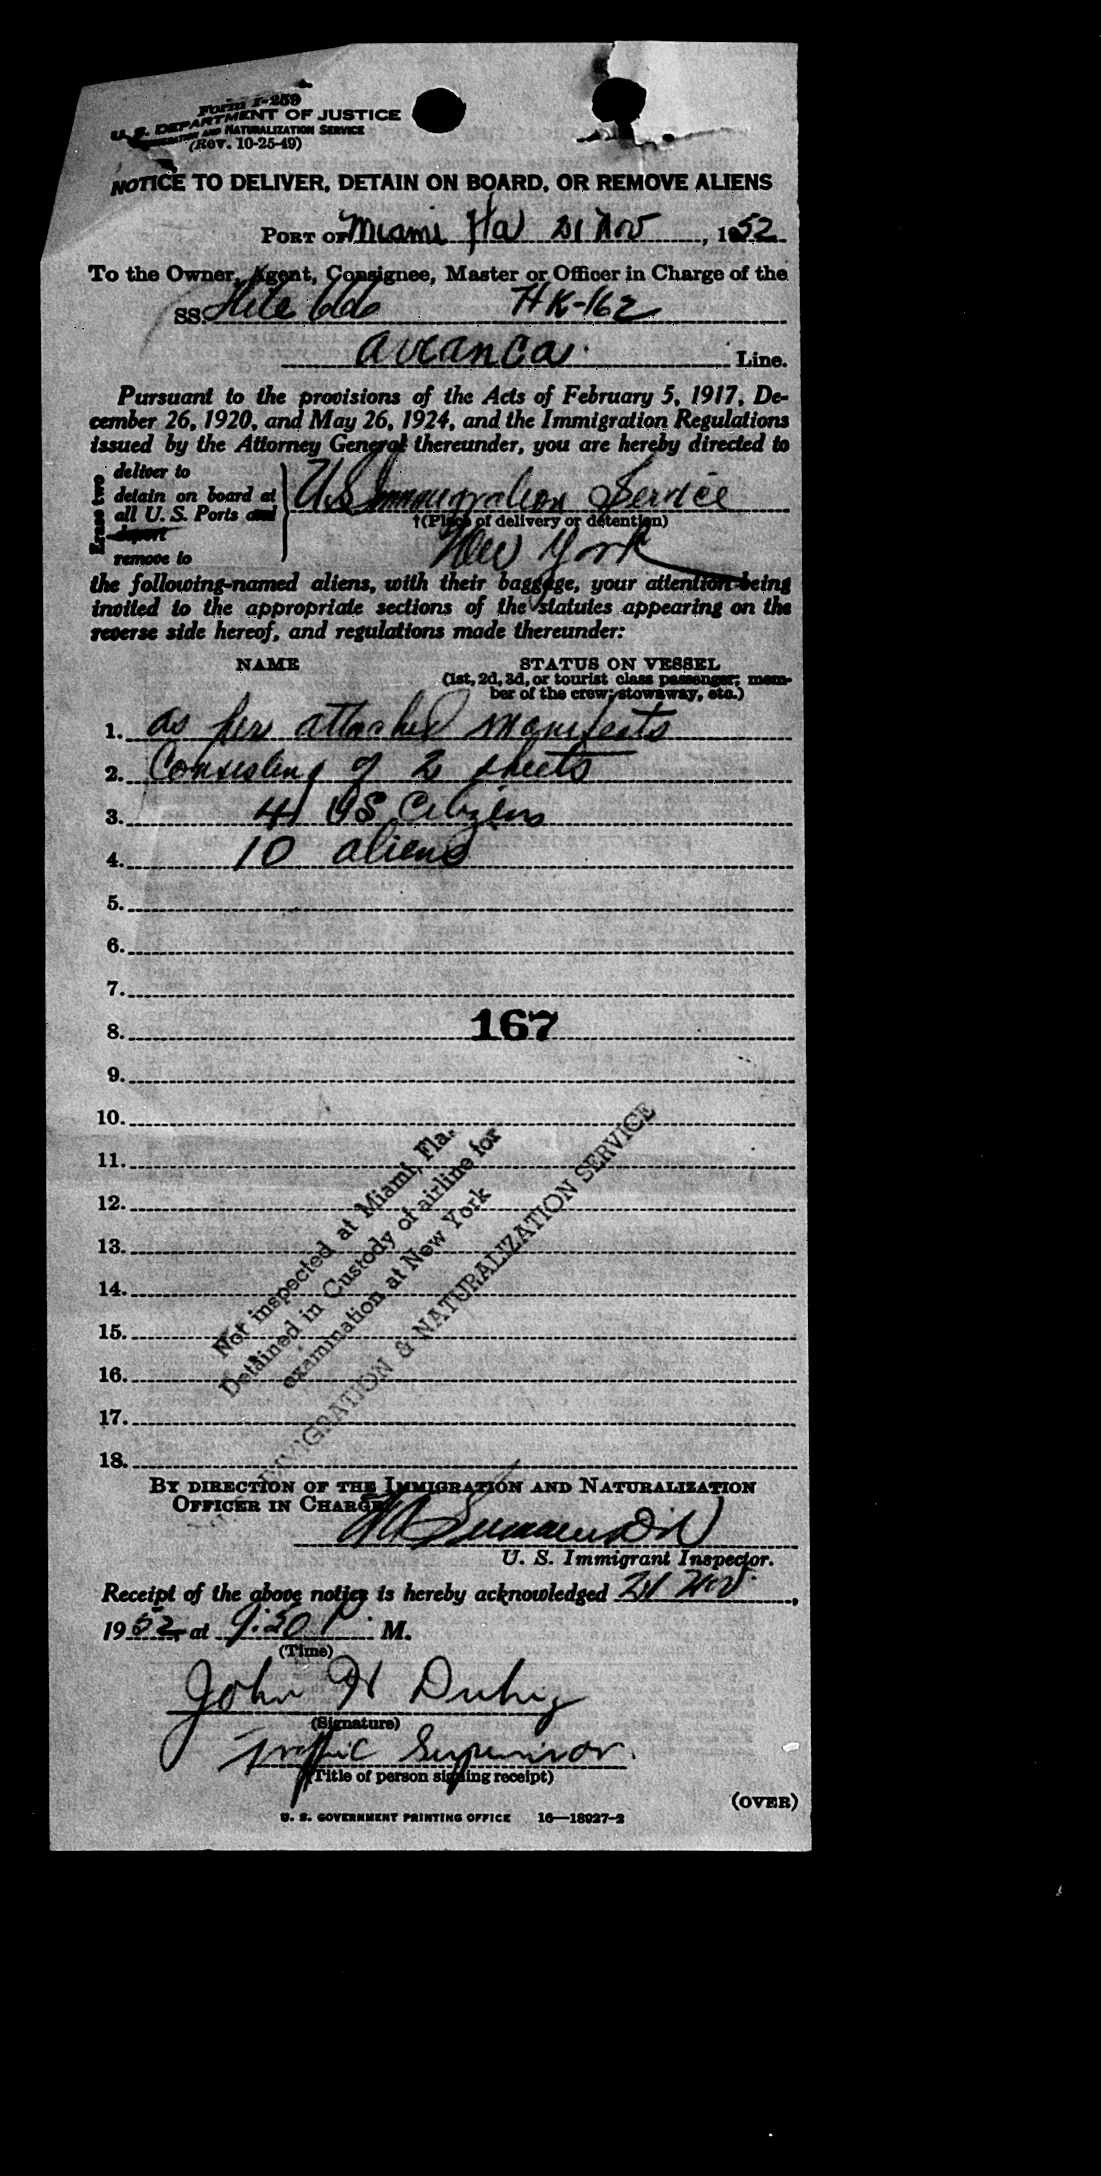 Form I-259
U. S. DEPARTMENT OF JUSTICE
IMMIGRATION AND NATURALIZATION SERVICE
(Rev. 10-25-49)
NOTICE TO DELIVER, DETAIN ON BOARD, OR REMOVE ALIENS
PORT OF Miami Fla 21 Nov, 1952
To the Owner, Agent, Consignee, Master or Officer in Charge of the
SS. HK-162
Avianca Line.
Pursuant to the provisions of the Acts of February 5, 1917, De-
cember 26, 1920, and May 26, 1924, and the Immigration Regulations
issued by the Attorney General thereunder, you are hereby directed to
Erase two
deliver to
detain on board at
all U. S. Ports and
deport
remove to
US Immigration Service
†(Place of delivery or detention)
New York
the following-named aliens, with their baggage, your attention being
invited to the appropriate sections of the statutes appearing on the
reverse side hereof, and regulations made thereunder:
NAME STATUS ON VESSEL
(1st, 2d, 3d, or tourist class passenger; mem-
ber of the crew; stowaway, etc.)
1. as per attached manifests
2. Consisting of 2 sheets
3. 41 US Citizens
4. 10 aliens
5.
6.
7.
8. 167
9.
10.
11.
12.
13.
14.
15.
16.
17.
18.
Not inspected at Miami, Fla.
Detained in Custody of airline for
examination at New York
IMMIGRATION & NATURALIZATION SERVICE
BY DIRECTION OF THE IMMIGRATION AND NATURALIZATION
OFFICER IN CHARGE
U. S. Immigrant Inspector.
Receipt of the above notice is hereby acknowledged 21 Nov.,
1952, at 9:50 P. M.
(Time)
John H
(Signature)
Traffic Supervisor.
(Title of person signing receipt)
(OVER)
U. S. GOVERNMENT PRINTING OFFICE 16—18927-2